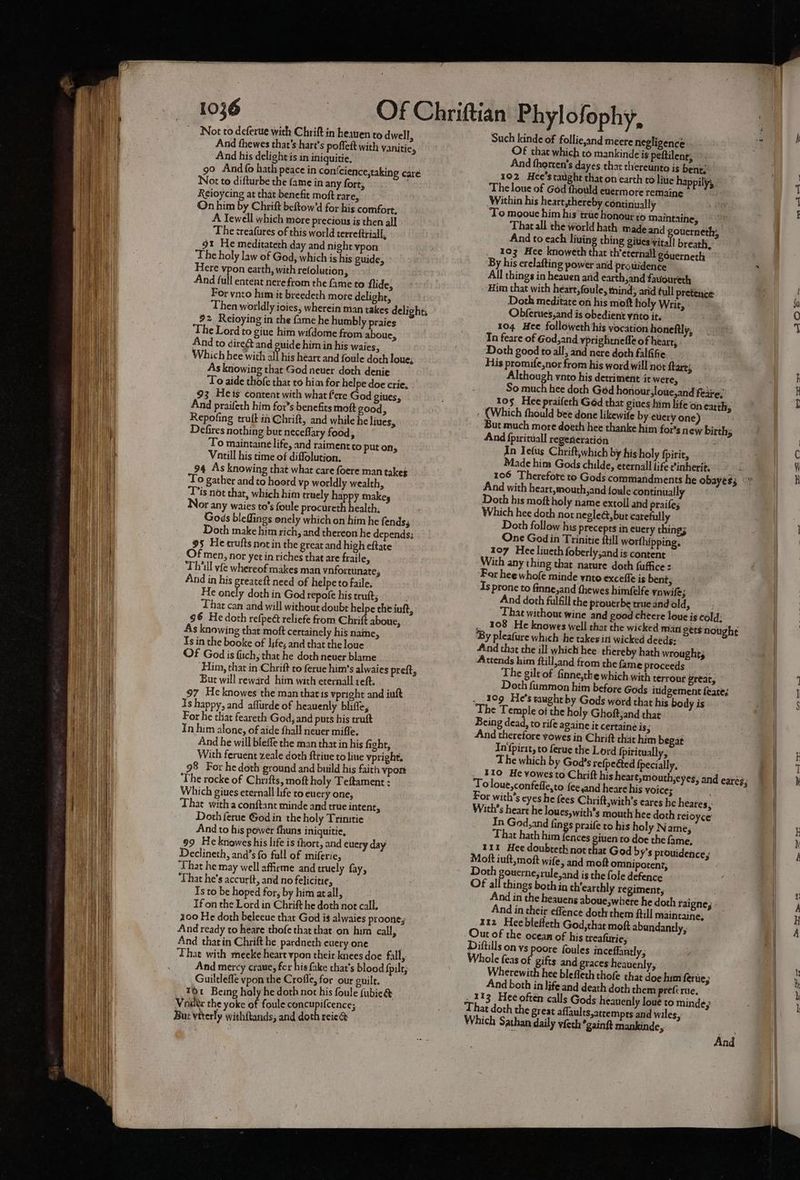 1036 Of Chriſtian Phyloſophy.
Not to deſerue with Chriſt in heauen to dwell,
And ſhewes that's hart's poſſeſt with vanitie,
And his delight is in iniquitie.
90 And ſo hath peace in conſcience, taking care
Not to diſturbe the ſame in any ſort,
Reioycing at that benefit moſt rare,
On him by Chriſt beſtow'd for his comfort,
A Iewell which more precious is then all
The treaſures of this world terreſtriall,
91 He meditateth day and night vpon
The holy law of God, which is his guide,
Here vpon earth, with reſolution,
And full entent nere from the ſame to ſlide,
For vnto him it breedeth more delight,
Then worldly ioies, wherein man takes delight.
92 Reioying in the ſame he humbly praies
The Lord to giue him wiſdome from aboue,
And to direct and guide him in his waies,
Which hee with all his heart and ſoule doth loue,
As knowing that God neuer doth denie
To aide thoſe that to him for helpe doe crie.
93 He is content with what ſere God giues,
And praiſeth him for's benefits moſt good,
Repoſing truſt in Chriſt, and while he liues,
Deſires nothing but neceſſary food,
To maintaine life, and raiment to put on,
Vntill his time of diſſolution.
94 As knowing that what care ſoere man takes
To gather and to hoord vp worldly wealth,
T'is not that, which him truely happy makes
Nor any waies to's ſoule procureth health,
Gods bleſſings onely which on him he ſends,
Doth make him rich, and thereon he depends:
95 He truſts not in the great and high eſtate
Of men, nor yet in riches that are fraile,
Th'ill vſe whereof makes man vnfortunate,
And in his greateſt need of helpe to faile.
He onely doth in God repoſe his truſt,
That can and will without doubt helpe the iuſt,
96 He doth reſpect reliefe from Chriſt aboue,
As knowing that moſt certainely his name,
Is in the booke of life, and that the loue
Of God is ſuch, that he doth neuer blame
Him, that in Chriſt to ſerue him's alwaies preſt,
But will reward him with eternall reſt.
97 He knowes the man that is vpright and iuſt
Is happy, and aſſurde of heauenly bliſſe,
For he that feareth God, and puts his truſt
In him alone, of aide ſhall neuer miſſe.
And he will bleſſe the man that in his ſight,
With feruent zeale doth ſtriue to liue vpright.
98 For he doth ground and build his faith vpon
The rocke of Chriſts, moſt holy Teſtament:
Which giues eternall life to euery one,
That with a conſtant minde and true intent,
Doth ſerue God in the holy Trinitie
And to his power ſhuns iniquitie,
99 He knowes his life is ſhort, and euery day
Declineth, and's ſo full of miſerie,
That he may well affirme and truely ſay,
That he's accurſt, and no felicitie,
Is to be hoped for, by him at all,
If on the Lord in Chriſt he doth not call.
100 He doth beleeue that God is alwaies proone,
And ready to heare thoſe that that on him call,
And that in Chriſt he pardneth euery one
That with meeke heart vpon their knees doe fall,
And mercy craue, for his ſake that's blood ſpilt,
Guiltleſſe vpon the Croſſe, for our guilt.
101 Being holy he doth not his ſoule ſubiect
Vnder the yoke of foule concupiſcence,
But vtterly withſtands, and doth reiect
Such kinde of follie, and meere negligence
Of that which to mankinde is peſtilent,
And ſhorten's dayes that thereunto is bent.
102 Hee's taught that on earth to liue happily,
The loue of God ſhould euermore remaine
Within his heart, thereby continually
To mooue him his true honour to maintaine,
That all the world hath made and gouerneth,
And to each liuing thing giues vitall breath.
103 Hee knoweth that th'eternall gouerneth
By his erelaſting power and prouidence
All things in heauen and earth, and fauoureth
Him that with heart, ſoule, mind, and full pretence
Doth meditate on his moſt holy Writ,
Obſerues, and is obedient vnto it.
104 Hee followeth his vocation honeſtly,
In feare of God, and vprightneſſe of heart,
Doth good to all, and nere doth falſifie
His promiſe, nor from his word will not ſtart,
Although vnto his detriment it were,
So much hee doth God honour, loue, and feare.
105 Hee praiſeth God that giues him life on earth,
(Which ſhould bee done likewiſe by euery one)
But much more doeth hee thanke him for's new birth,
And ſpirituall regeneration
In Ieſus Chriſt, which by his holy ſpirit,
Made him Gods childe, eternall life t'inherit.
106 Therefore to Gods commandments he obayes,
And with heart, mouth, and ſoule continually
Doth his moſt holy name extoll and praiſe,
Which hee doth not neglect, but carefully
Doth follow his precepts in euery thing,
One God in Trinitie ſtill worſhipping.
107 Hee liueth ſoberly, and is content
With any thing that nature doth ſuffice:
For hee whoſe minde vnto exceſſe is bent,
Is prone to ſinne, and ſhewes himſelfe vnwiſe,
And doth fulfill the prouerbe true and old,
That without wine and good cheere loue is cold.
108 He knowes well that the wicked man gets nought
By pleaſure which he takes in wicked deeds;
And that the ill which hee thereby hath wrought,
Attends him ſtill, and from the ſame proceeds
The gilt of ſinne, the which with terrour great,
Doth ſummon him before Gods iudgement ſeate;
109 He's taught by Gods word that his body is
The Temple of the holy Ghoſt, and that
Being dead, to riſe againe it certaine is,
And therefore vowes in Chriſt that him begat
In ſpirit, to ſerue the Lord ſpiritually,
The which by God's reſpected ſpecially.
110 He vowes to Chriſt his heart, mouth, eyes, and eares,
To loue, confeſſe, to ſee, and heare his voice;
For with's eyes he ſees Chriſt, with's eares he heares,
With's heart he loues, with's mouth hee doth reioyce
In God, and ſings praiſe to his holy Name,
That hath him ſences giuen to doe the ſame.
111 Hee doubteth not that God by's prouidence,
Moſt iuſt, moſt wiſe, and moſt omnipotent,
Doth gouerne, rule, and is the ſole defence
Of all things both in th'earthly regiment,
And in the heauens aboue, where he doth raigne,
And in their eſſence doth them ſtill maintaine.
112 Hee bleſſeth God, that moſt abundantly,
Out of the ocean of his treaſurie,
Diſtills on vs poore ſoules inceſſantly,
Whole ſeas of gifts and graces heauenly,
Wherewith hee bleſſeth thoſe that doe him ſerue,
And both in life and death doth them preſerue.
113 Hee often calls Gods heauenly loue to minde,
That doth the great aſſaults, attempts and wiles,
Which Sathan daily vſeth 'gainſt mankinde,
And